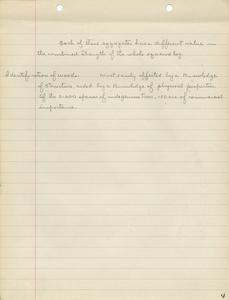 Each of these aggregates has a different value in
the combined strength of the whole squared log.
Identification of woods: Most easily effected by a Knowledge
of structure, aided by a Knowledge of physical properties
Of the 2-600 species of indigenous trees, - 50 are of commercial
importance.
4